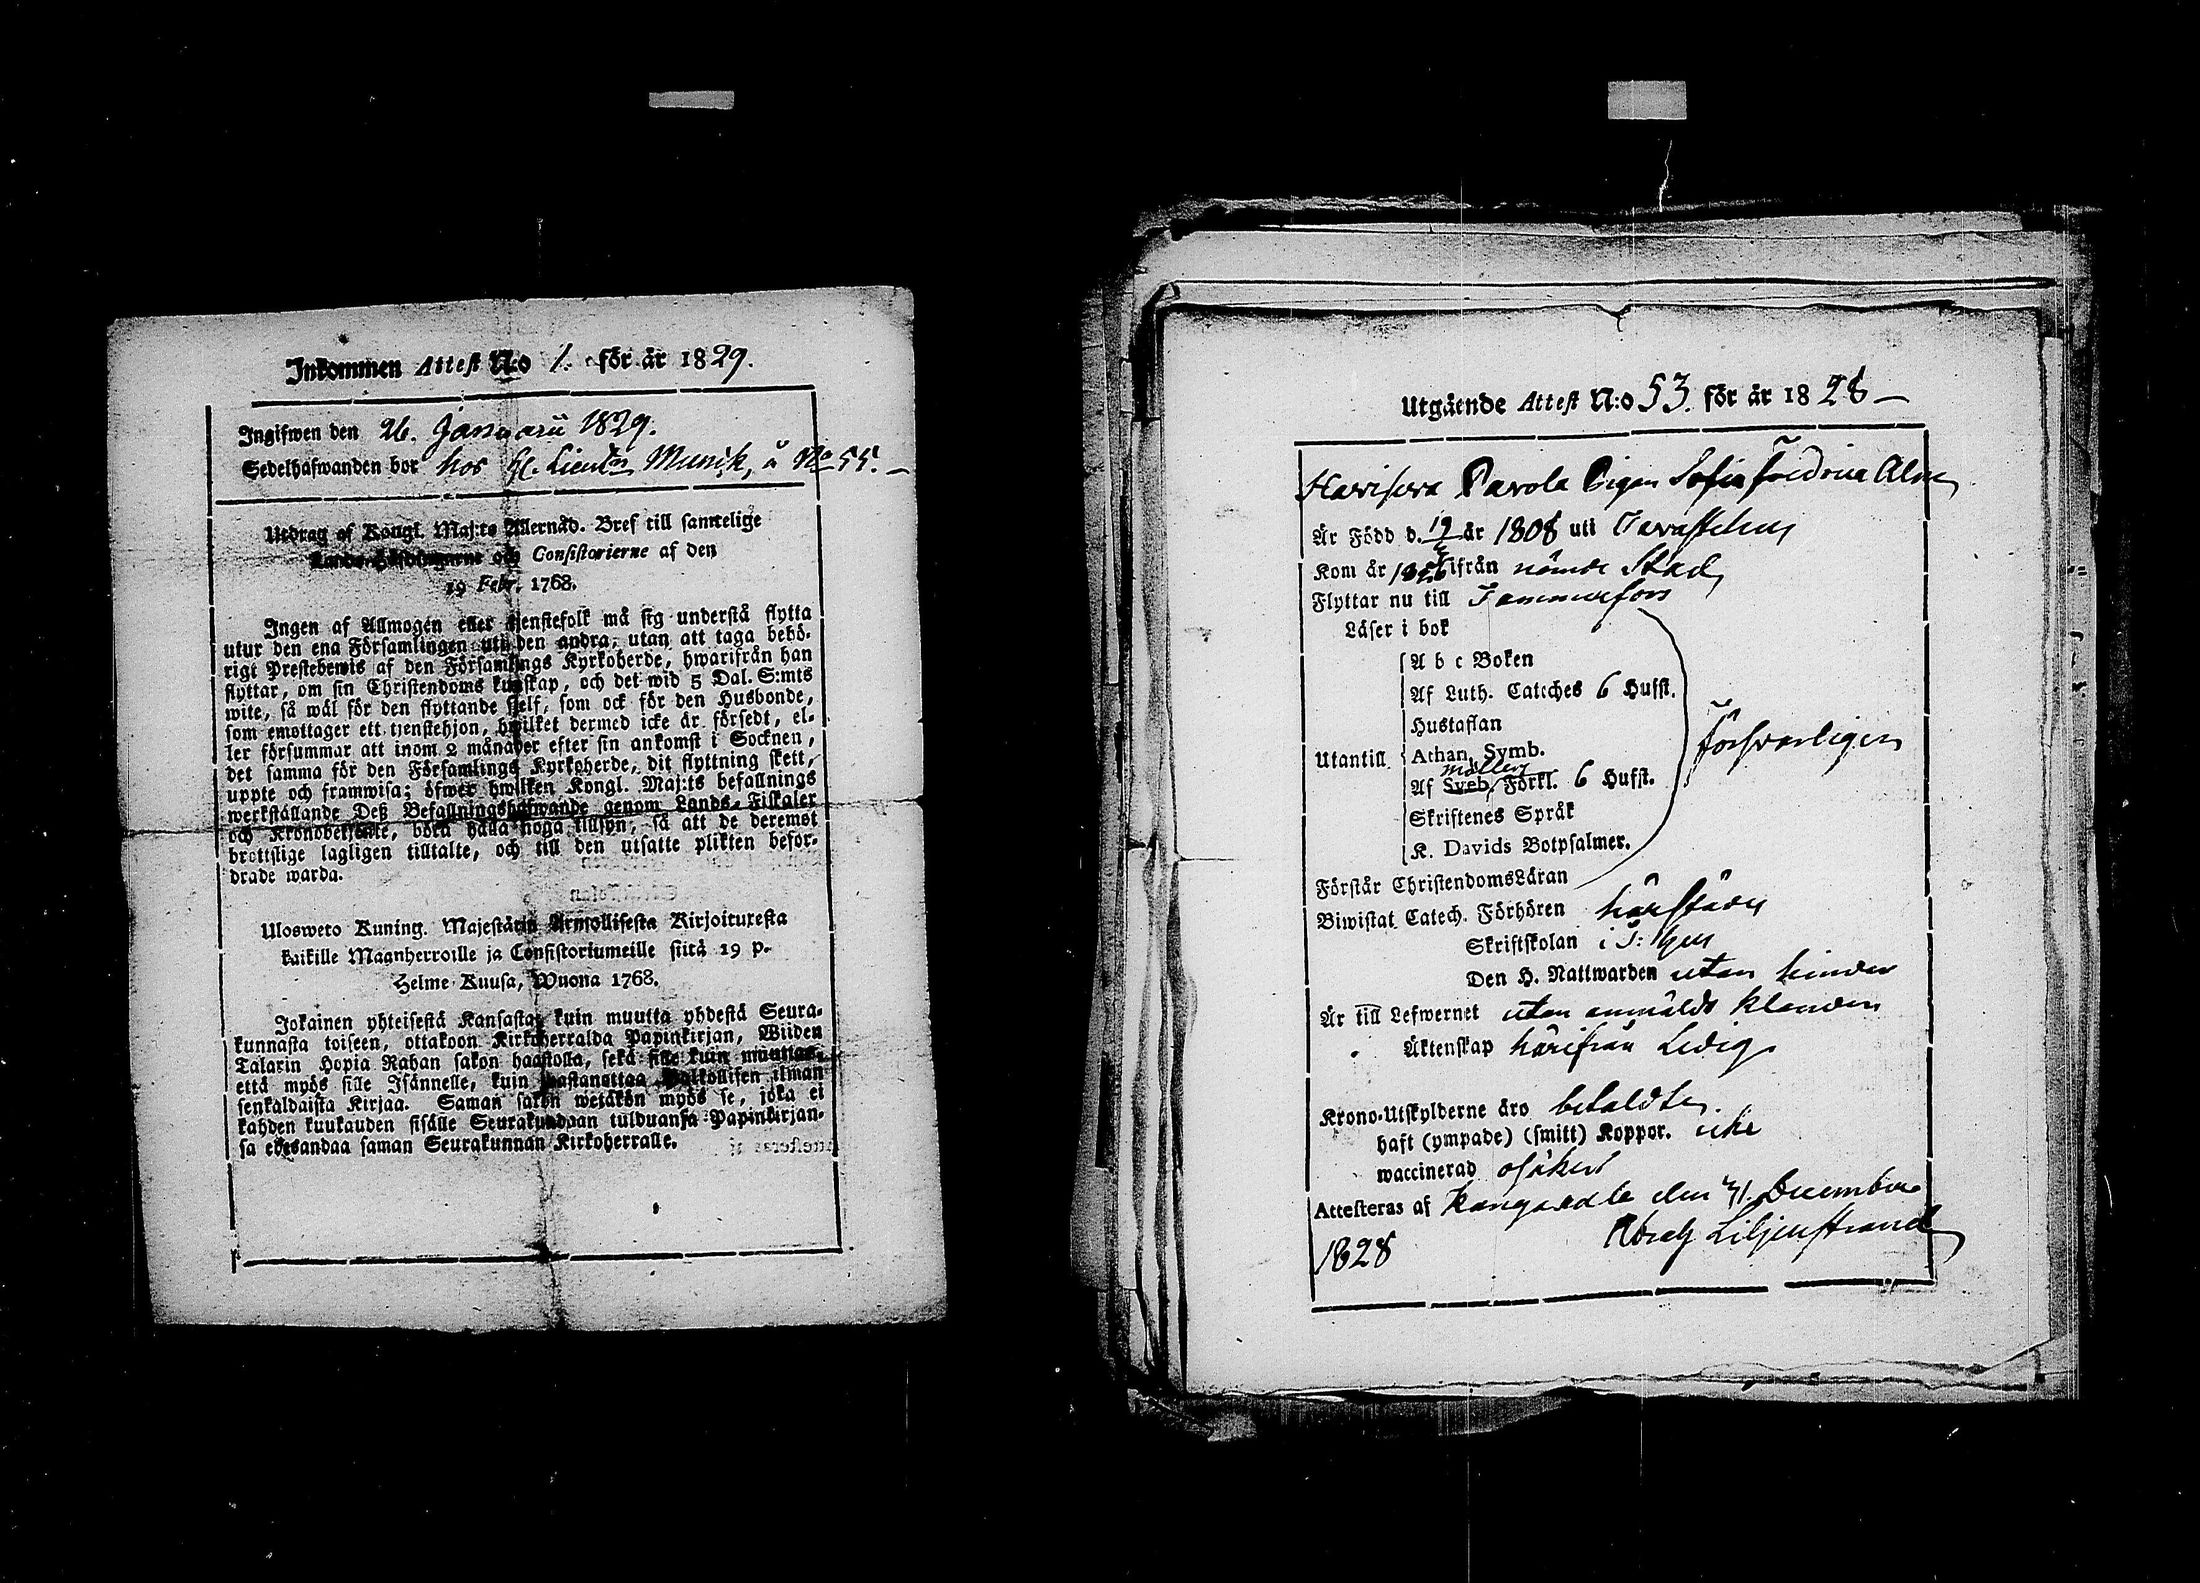 Inkommen Attest N:o 1. för år 1829.
Ingifwen den 26. Januarii 1829.
Sedelhafwanden bor hos H. Lieutn Munck, å No 55.
Utdrag af Kongl. Maj:ts Allernåd. Bref till samtelige
Lands-Höfdingarne och Consistorierne af den
19 Febr. 1768.
Ingen af Allmogen eller tjenstefolk må sig understå flytta
utur den ena Församlingen uti den andra, utan att taga behö-
rigt Prestebewis af den Församlings Kyrkoherde, hwarifrån han
flyttar, om sin Christendoms kunskap, och det wid 5 Dal. S:mts
wite, så wäl för den flyttande sjelf, som ock för den Husbonde,
som emottager ett tjenstehjon, hwilket dermed icke är försedt, el-
ler försummar att inom 2 månader efter sin ankomst i Socknen,
det samma för den Församlings Kyrkoherde, dit flyttning skett,
uppte och framwisa; öfwer hwilken Kongl. Maj:ts befallnings
werkställande Deß Befallningshafwande genom Lands-Fiskaler
och Kronobetjente, böra hålla noga tillsyn, så att de deremot
brottslige lagligen tilltalte, och till den utsatte plikten befor-
drade warda.
Ulosweto Kuning. Majestätin Armollisesta Kirjoituxesta
kaikille Maanherroille ja Consistoriumeille siitä 19 p.
Helme-Kuusa, Wuona 1768.
Jokainen yhteisestä Kansasta, kuin muutta yhdestä Seura-
kunnasta toiseen, ottakoon Kirkkoherralda Papinkirjan, Wiiden
Talarin Hopia Rahan sakon haastolla, sekä sille kuin muuttaa,
että myös sille Isännelle, kuin wastanottaa Palkollisen ilman
senkaldaista Kirjaa. Saman sakon wetäkön myös se, joka ei
kahden kuukauden sisälle Seurakundaan tulduansa Papinkirjan-
sa edesandaa saman Seurakunnan Kirkoherralle.
Utgående Attest N:o 53. för år 1828
Haviseva Parola Pigan Sofia Fredrica Alm
Är Född d. 19 år 1808 uti Tavastehus
Kom år ifrån nämde Stad
Flyttar nu till Tammerfors
Läser i bok
A b c Boken
Af Luth. Cateches 6 Hufst.
Hustaflan
Utantill Athan. Symb.
Möllers
Af Sveb. Förkl. 6 Hufst.
Skriftenes Språk
K. Davids Botpsalmer.
försvarligen
Förstår ChristendomsLäran
Biwistat Catech. Förhören härstädes
Skriftskolan i T:hus
Den H. Nattwarden utan hinder
Är till Lefwernet utan anmäldt klander
Äktenskap härifrån Ledig
Krono-Utskylderne äro betaldte
haft (ympade) (smitt) Koppor. icke
waccinerad osäkert
Attesteras af Kangasala den 31. December
1828 Abrah Liljenstrand